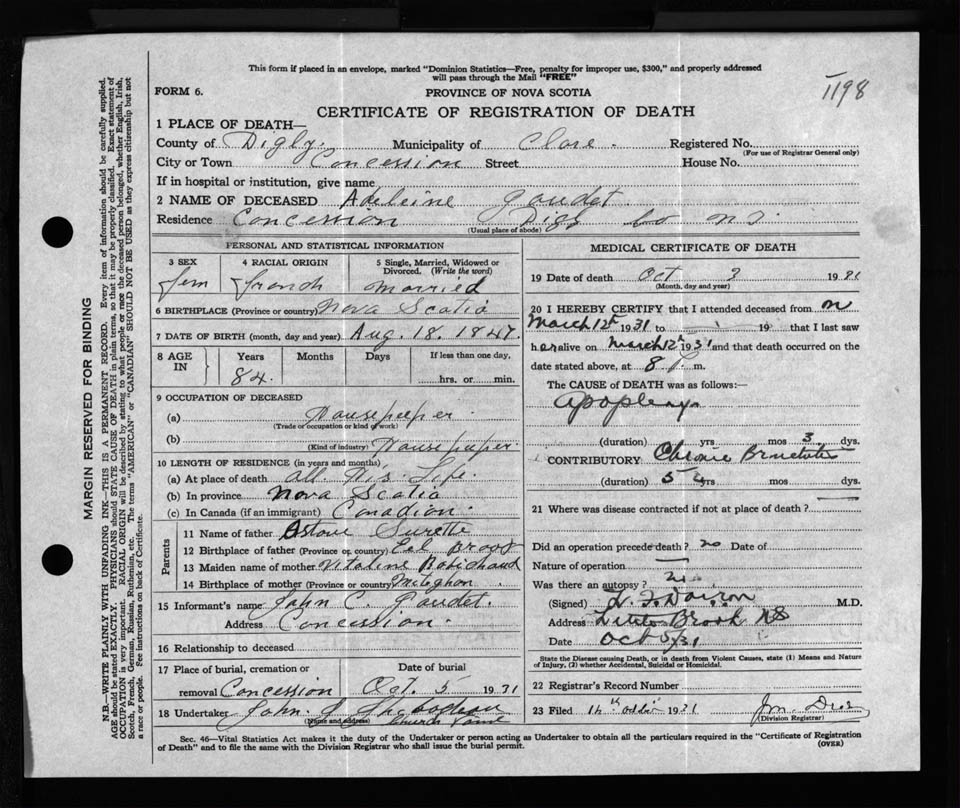 This form if placed in an envelope, marked "Dominion Statistics—Free, penalty for improper use, $300," and properly addressed
will pass through the Mail "FREE"
1198
FORM 6.
PROVINCE OF NOVA SCOTIA
CERTIFICATE OF REGISTRATION OF DEATH
1 PLACE OF DEATH—
County of Digby. Municipality of Clare. Registered No.
(For use of Registrar General only)
City or Town Concession Street House No.
If in hospital or institution, give name
2 NAME OF DECEASED Adeleine Goudet
Residence Concession Digby Co N.S.
(Usual place of abode)
PERSONAL AND STATISTICAL INFORMATION
3 SEX 4 RACIAL ORIGIN 5 Single, Married, Widowed or
Divorced. (Write the word)
Fem french married
6 BIRTHPLACE (Province or country) Nova Scotia
7 DATE OF BIRTH (month, day and year) Aug. 18. 1847.
8 AGE
IN
Years Months Days If less than one day,
84. hrs. or min.
9 OCCUPATION OF DECEASED
(a) Housekeeper.
(Trade or occupation or kind of work)
(b) Housekeeper.
(Kind of industry)
10 LENGTH OF RESIDENCE (in years and months)
(a) At place of death all. His Life
(b) In province Nova Scotia
(c) In Canada (if an immigrant) Canadian.
Parents
11 Name of father Surette
12 Birthplace of father (Province or country) Eel Brook
13 Maiden name of mother Vitaline Robichaud
14 Birthplace of mother (Province or country) Meteghan.
15 Informant's name John C. Goudet.
Address Concession.
16 Relationship to deceased
17 Place of burial, cremation or Date of burial
removal Concession Oct. 5 1931
18 Undertaker John
(Name and address) Church Point
MEDICAL CERTIFICATE OF DEATH
19 Date of death Oct 3 1931
(Month, day and year)
20 I HEREBY CERTIFY that I attended deceased from
March 12th 1931 to 19 that I last saw
her alive on March 12th 1931 and that death occurred on the
date stated above, at 8 P. m.
The CAUSE of DEATH was as follows:—
apoplexy
(duration) yrs mos 3 dys.
CONTRIBUTORY Chronic Bronchitis
(duration) 5 yrs mos dys.
21 Where was disease contracted if not at place of death?
Did an operation precede death? no Date of
Nature of operation
Was there an autopsy? no
(Signed) M.D.
Address Little Brook NS
Date Oct 5/31
State the Disease causing Death, or in death from Violent Causes, state (1) Means and Nature
of Injury, (2) whether Accidental, Suicidal or Homicidal.
22 Registrar's Record Number
23 Filed 1931
(Division Registrar)
Sec. 46—Vital Statistics Act makes it the duty of the Undertaker or person acting as Undertaker to obtain all the particulars required in the "Certificate of Registration
of Death" and to file the same with the Division Registrar who shall issue the burial permit.
(OVER)
MARGIN RESERVED FOR BINDING
N.B.—WRITE PLAINLY WITH UNFADING INK—THIS IS A PERMANENT RECORD. Every item of information should be carefully supplied.
AGE should be stated EXACTLY. PHYSICIANS should STATE CAUSE OF DEATH in plain terms, so that it may be properly classified. Exact statement of
OCCUPATION is very important. RACIAL ORIGIN will be described by stating to what people or race the deceased person belonged, whether English, Irish,
Scotch, French, German, Russian, Ruthenian, etc. The terms "AMERICAN" or "CANADIAN" SHOULD NOT BE USED as they express citizenship but not
a race or people. See instructions on back of Certificate.